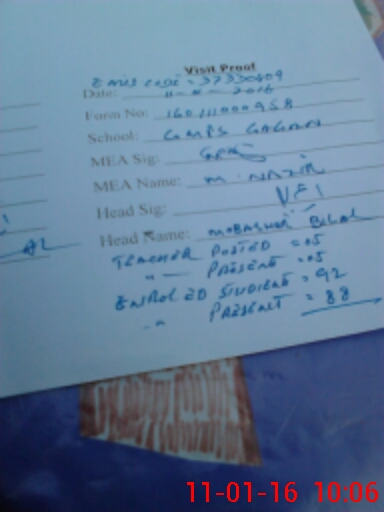 Visit Proof
Emis code = 37330409
Date: 11-1-2016
Form No: 160111000958
School: GMPS GAGAN
MEA Sig:
MEA Name: M. NAZIR
Head Sig:
Head Name: MOBASHAR BILAL
TEACHER POSTED = 05
" — PRESENT = 05
ENROLED STUDIENT = 92
" PRESENT = 88
11-01-16 10:06